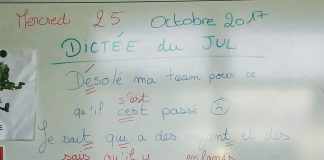 Mercredi 25 octobre 2017
DICTÉE du JUL
Désolé ma team pour ce
s'est
qu'il c'est passé ☹
Je sait qui a des et des
sais qu'il y enfants